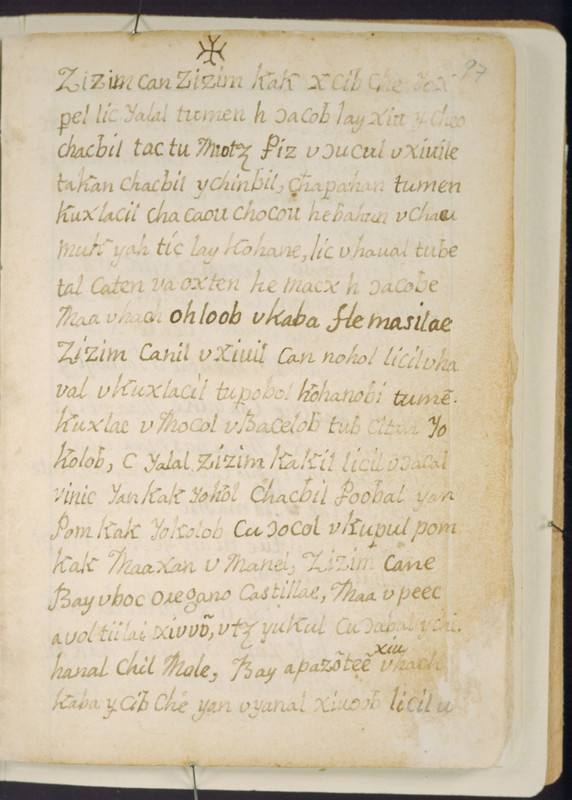 97
Zizim can Zizim kak x cib che yox
pel lic yalal tumen h Ɔacob lay xiu y cheo
chacbil tac tu Motz Piz v Ɔucul v xiuile
takan chacbil y chinbil, chapahan tumen
kuxlacil cha caou chocou he bahun v chac
muk yah tic lay kohane, lic v haual tube
tal caten va oxten he macx h Ɔacobe
Maa v hach ohloob v kaba He masilae
Zizim Canil v xiuil Can nohol licil v ha
val v kuxlacil tu pobol kohanobi tumē.
kuxlae v Mocol v Bacelob tub yo
kolob, C yalal Zizim kakil licil v Ɔacal
vinic yan kak yokol Chacbil Poobal yan
Pom kak yokolob Cu Ɔocol v kupul pom
kak Maaxan v Manel, Zizim cane
Bay v boc Oregano Castillae, Maa v peec
a vol tiilai xivvō, v tz yukul Cu Ɔabal y chi.
hanal Chil Mole, Bay apazōteē v hach
xiu
kaba y Cib Ché yan v yanal xiuoob licil u